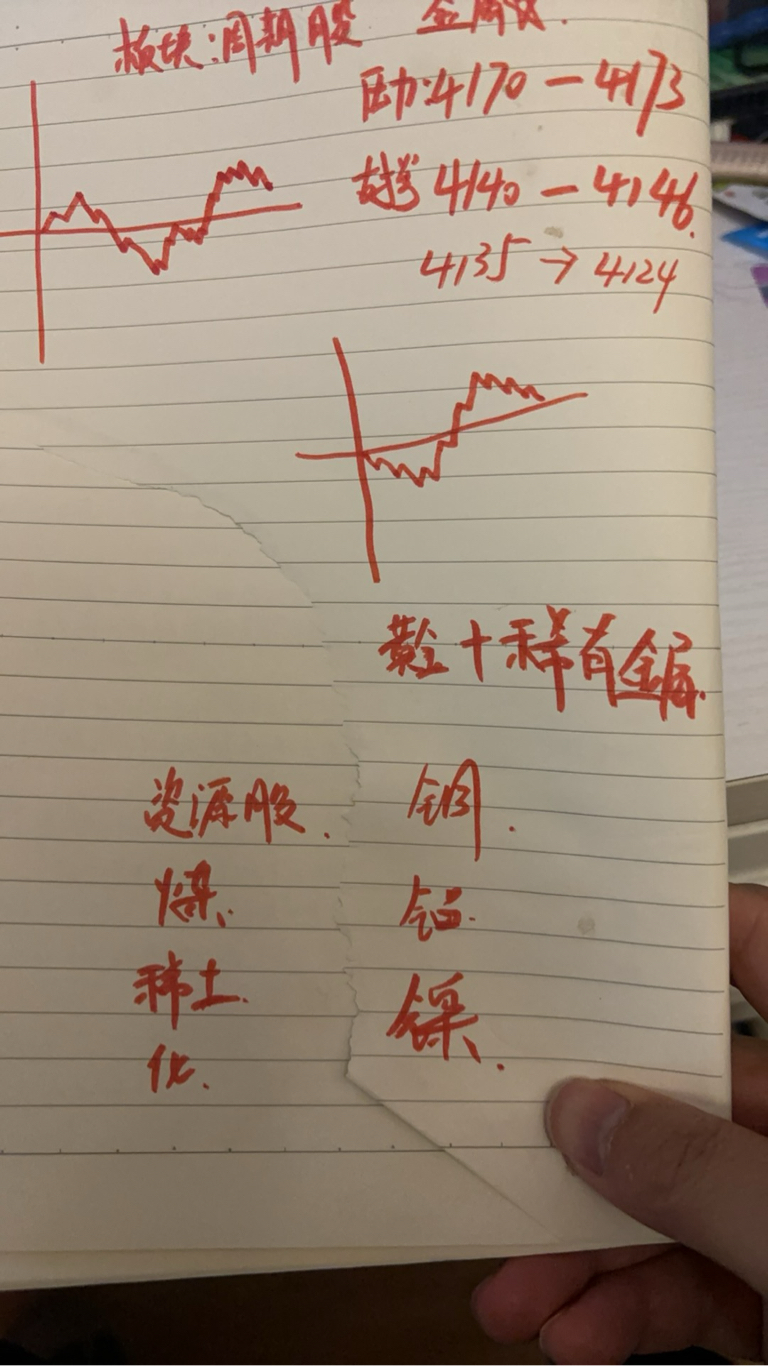 板块:周期股 金属
压力:4170 — 4173
支撑 4140 — 4146.
4135 → 4124
黄金+稀有金属.
资源股. 铜.
煤. 铝.
稀土. 镍.
化.